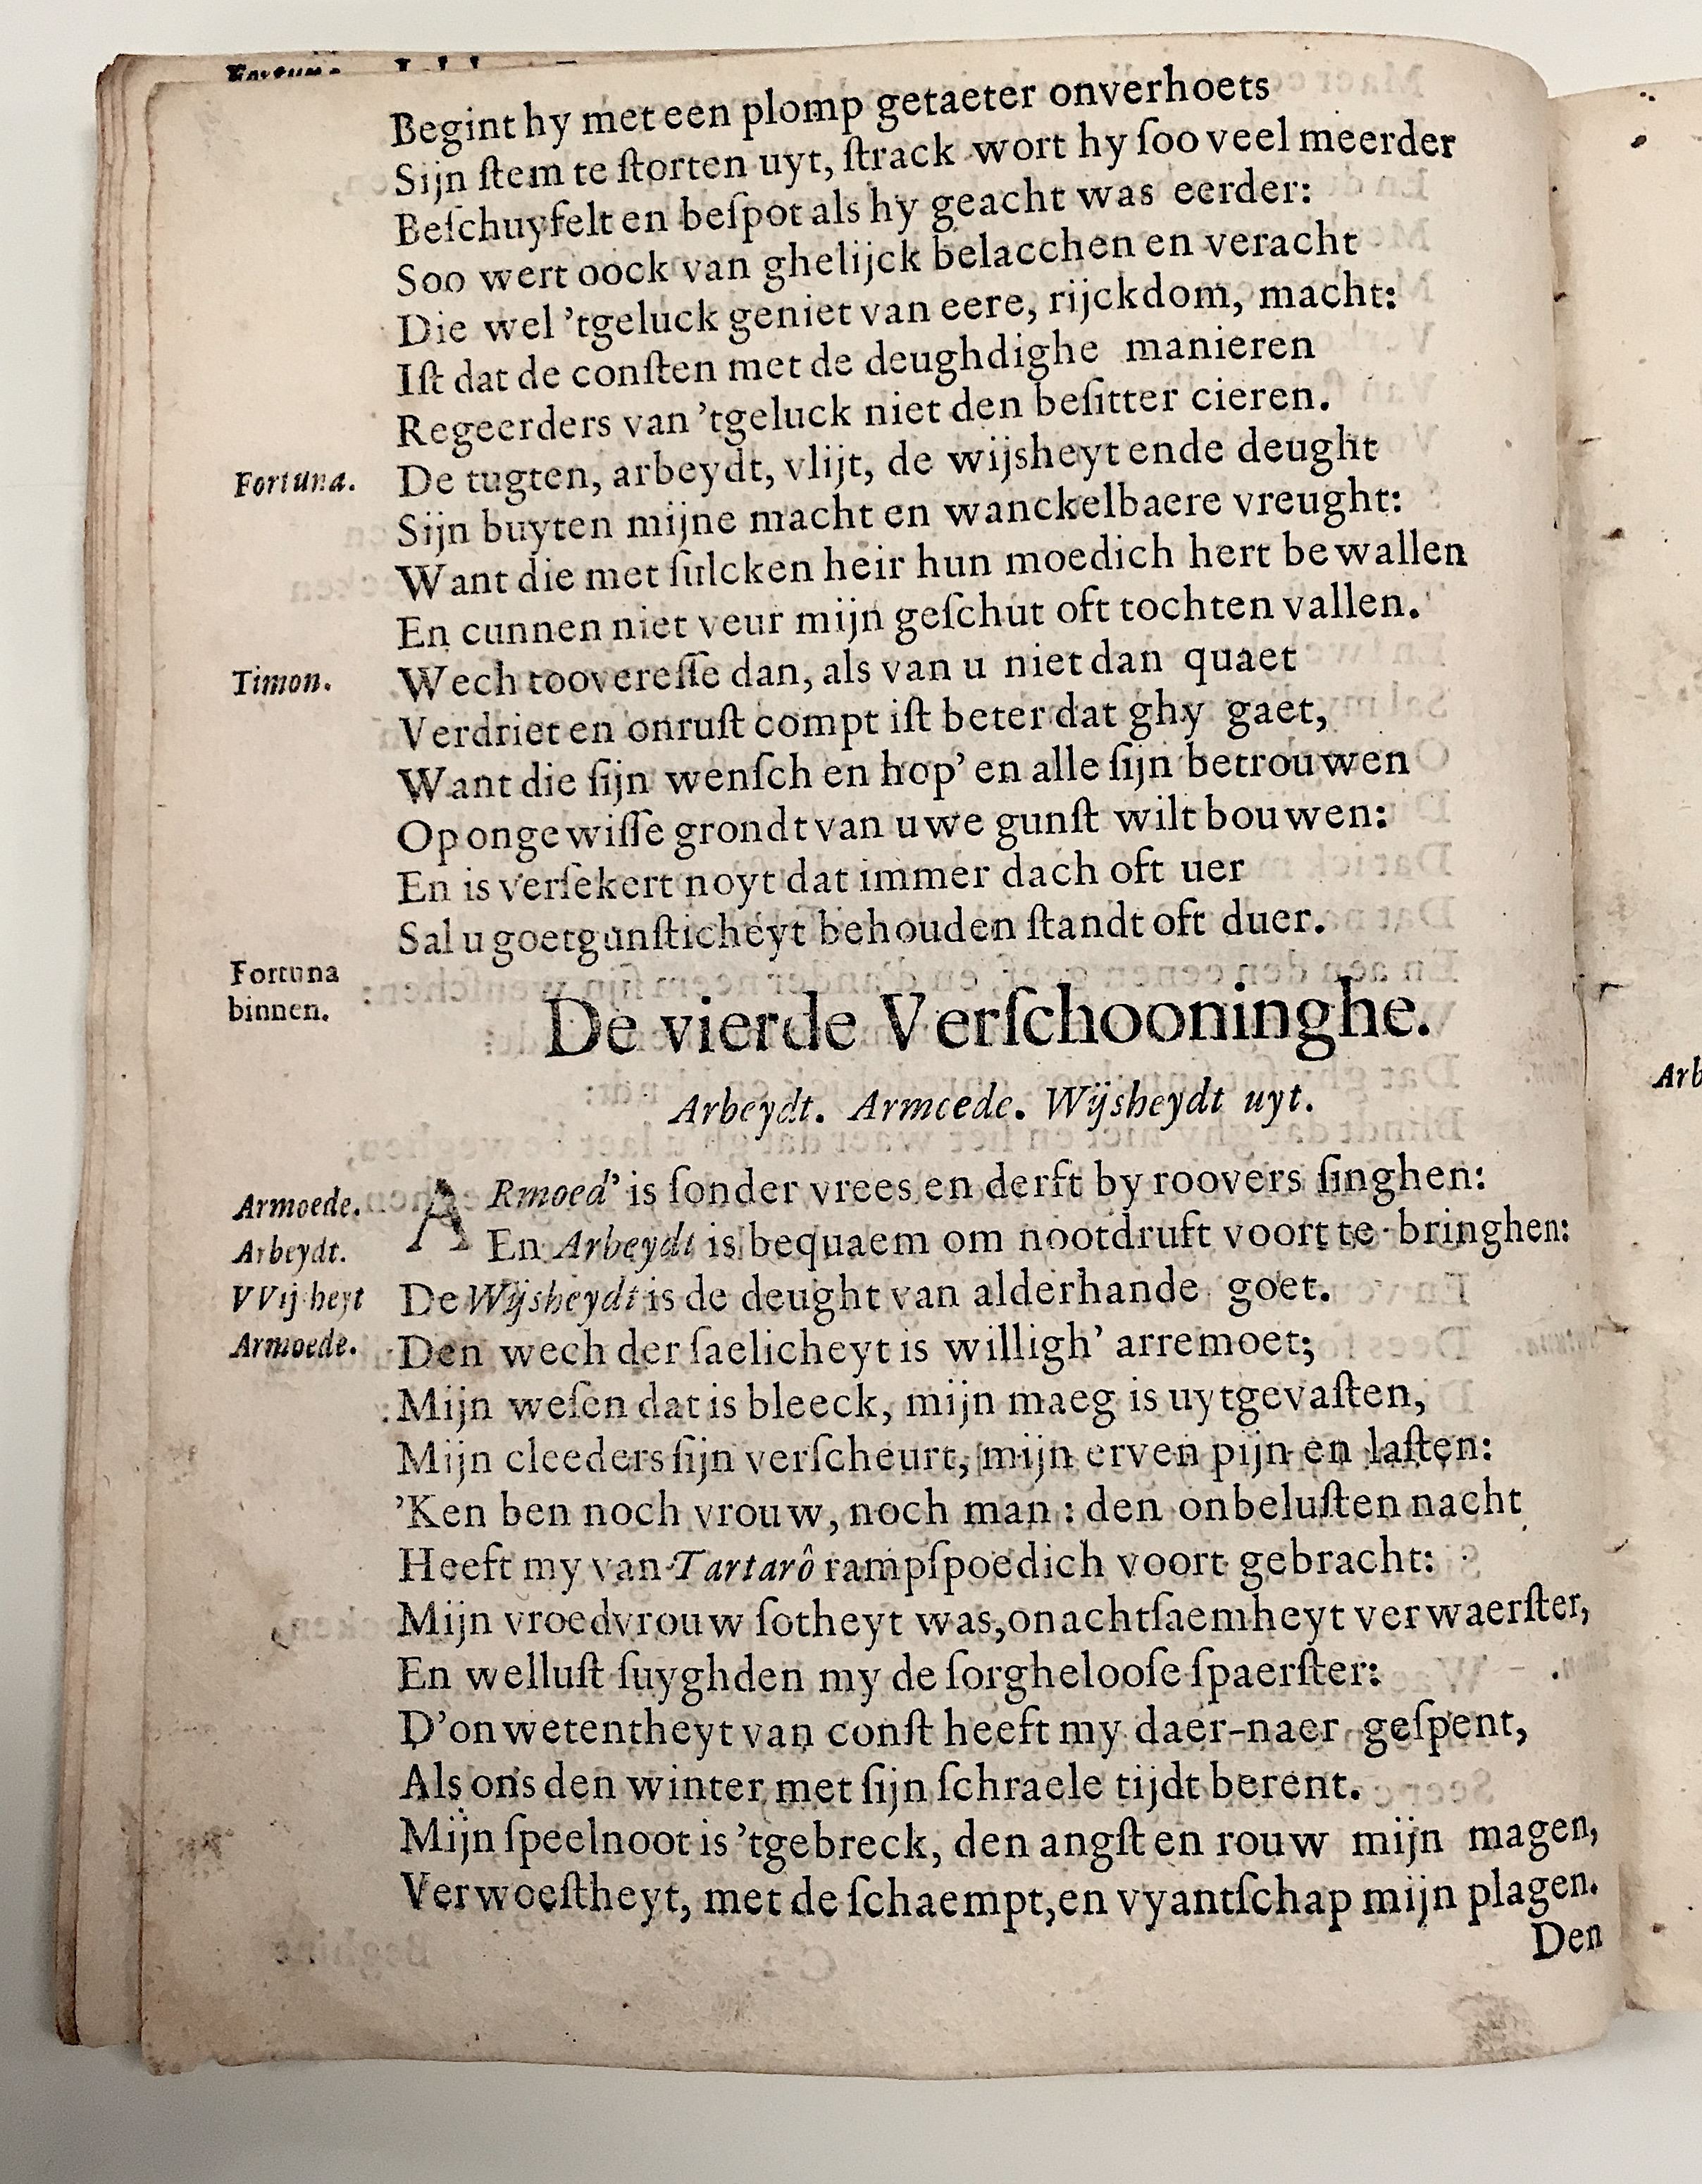 Begint hy met een plomp getaeter onverhoets
Sijn ſtem te ſtorten uyt, ſtrack wort hy ſoo veel meerder
Beſchuyfelt en beſpot als hy geacht was eerder:
Soo wert oock van ghelijck belacchen en veracht
Die wel 'tgeluck geniet van eere, rijckdom, macht:
Iſt dat de conſten met de deughdighe manieren
Regeerders van 'tgeluck niet den beſitter cieren.
Fortuna. De tugten, arbeydt, vlijt, de wijsheyt ende deught
Sijn buyten mijne macht en wanckelbaere vreught:
Want die met ſulcken heir hun moedich hert bewallen
En cunnen niet veur mijn geſchut oft tochten vallen.
Timon. Wech toovereſſe dan, als van u niet dan quaet
Verdriet en onruſt compt iſt beter dat ghy gaet,
Want die ſijn wenſch en hop' en alle ſijn betrouwen
Op ongewiſſe grondt van uwe gunſt wilt bouwen:
En is verſekert noyt dat immer dach oft uer
Sal u goetgunſticheyt behouden ſtandt oft duer.
Fortuna
binnen.
De vierde Verſchooninghe.
Arbeydt. Armcede. Wijsheydt uyt.
Armoede. ARmoed' is ſonder vrees en derft by roovers ſinghen:
Arbeydt. En Arbeydt is bequaem om nootdruft voort te bringhen:
VVij heyt De Wijsheydt is de deught van alderhande goet.
Armoede. Den wech der ſaelicheyt is willigh' arremoet;
Mijn weſen dat is bleeck, mijn maeg is uytgevaſten,
Mijn cleeders ſijn verſcheurt, mijn erven pijn en laſten:
'Ken ben noch vrouw, noch man: den onbeluſten nacht
Heeft my van Tartarô rampſpoedich voort gebracht:
Mijn vroedvrouw ſotheyt was, onachtſaemheyt verwaerſter,
En welluſt ſuyghden my de ſorghelooſe ſpaerſter:
D'onwetentheyt van conſt heeft my daer-naer geſpent,
Als ons den winter met ſijn ſchraele tijdt berent.
Mijn ſpeelnoot is 'tgebreck, den angſt en rouw mijn magen,
Verwoeſtheyt, met de ſchaempt, en vyantſchap mijn plagen.
Den